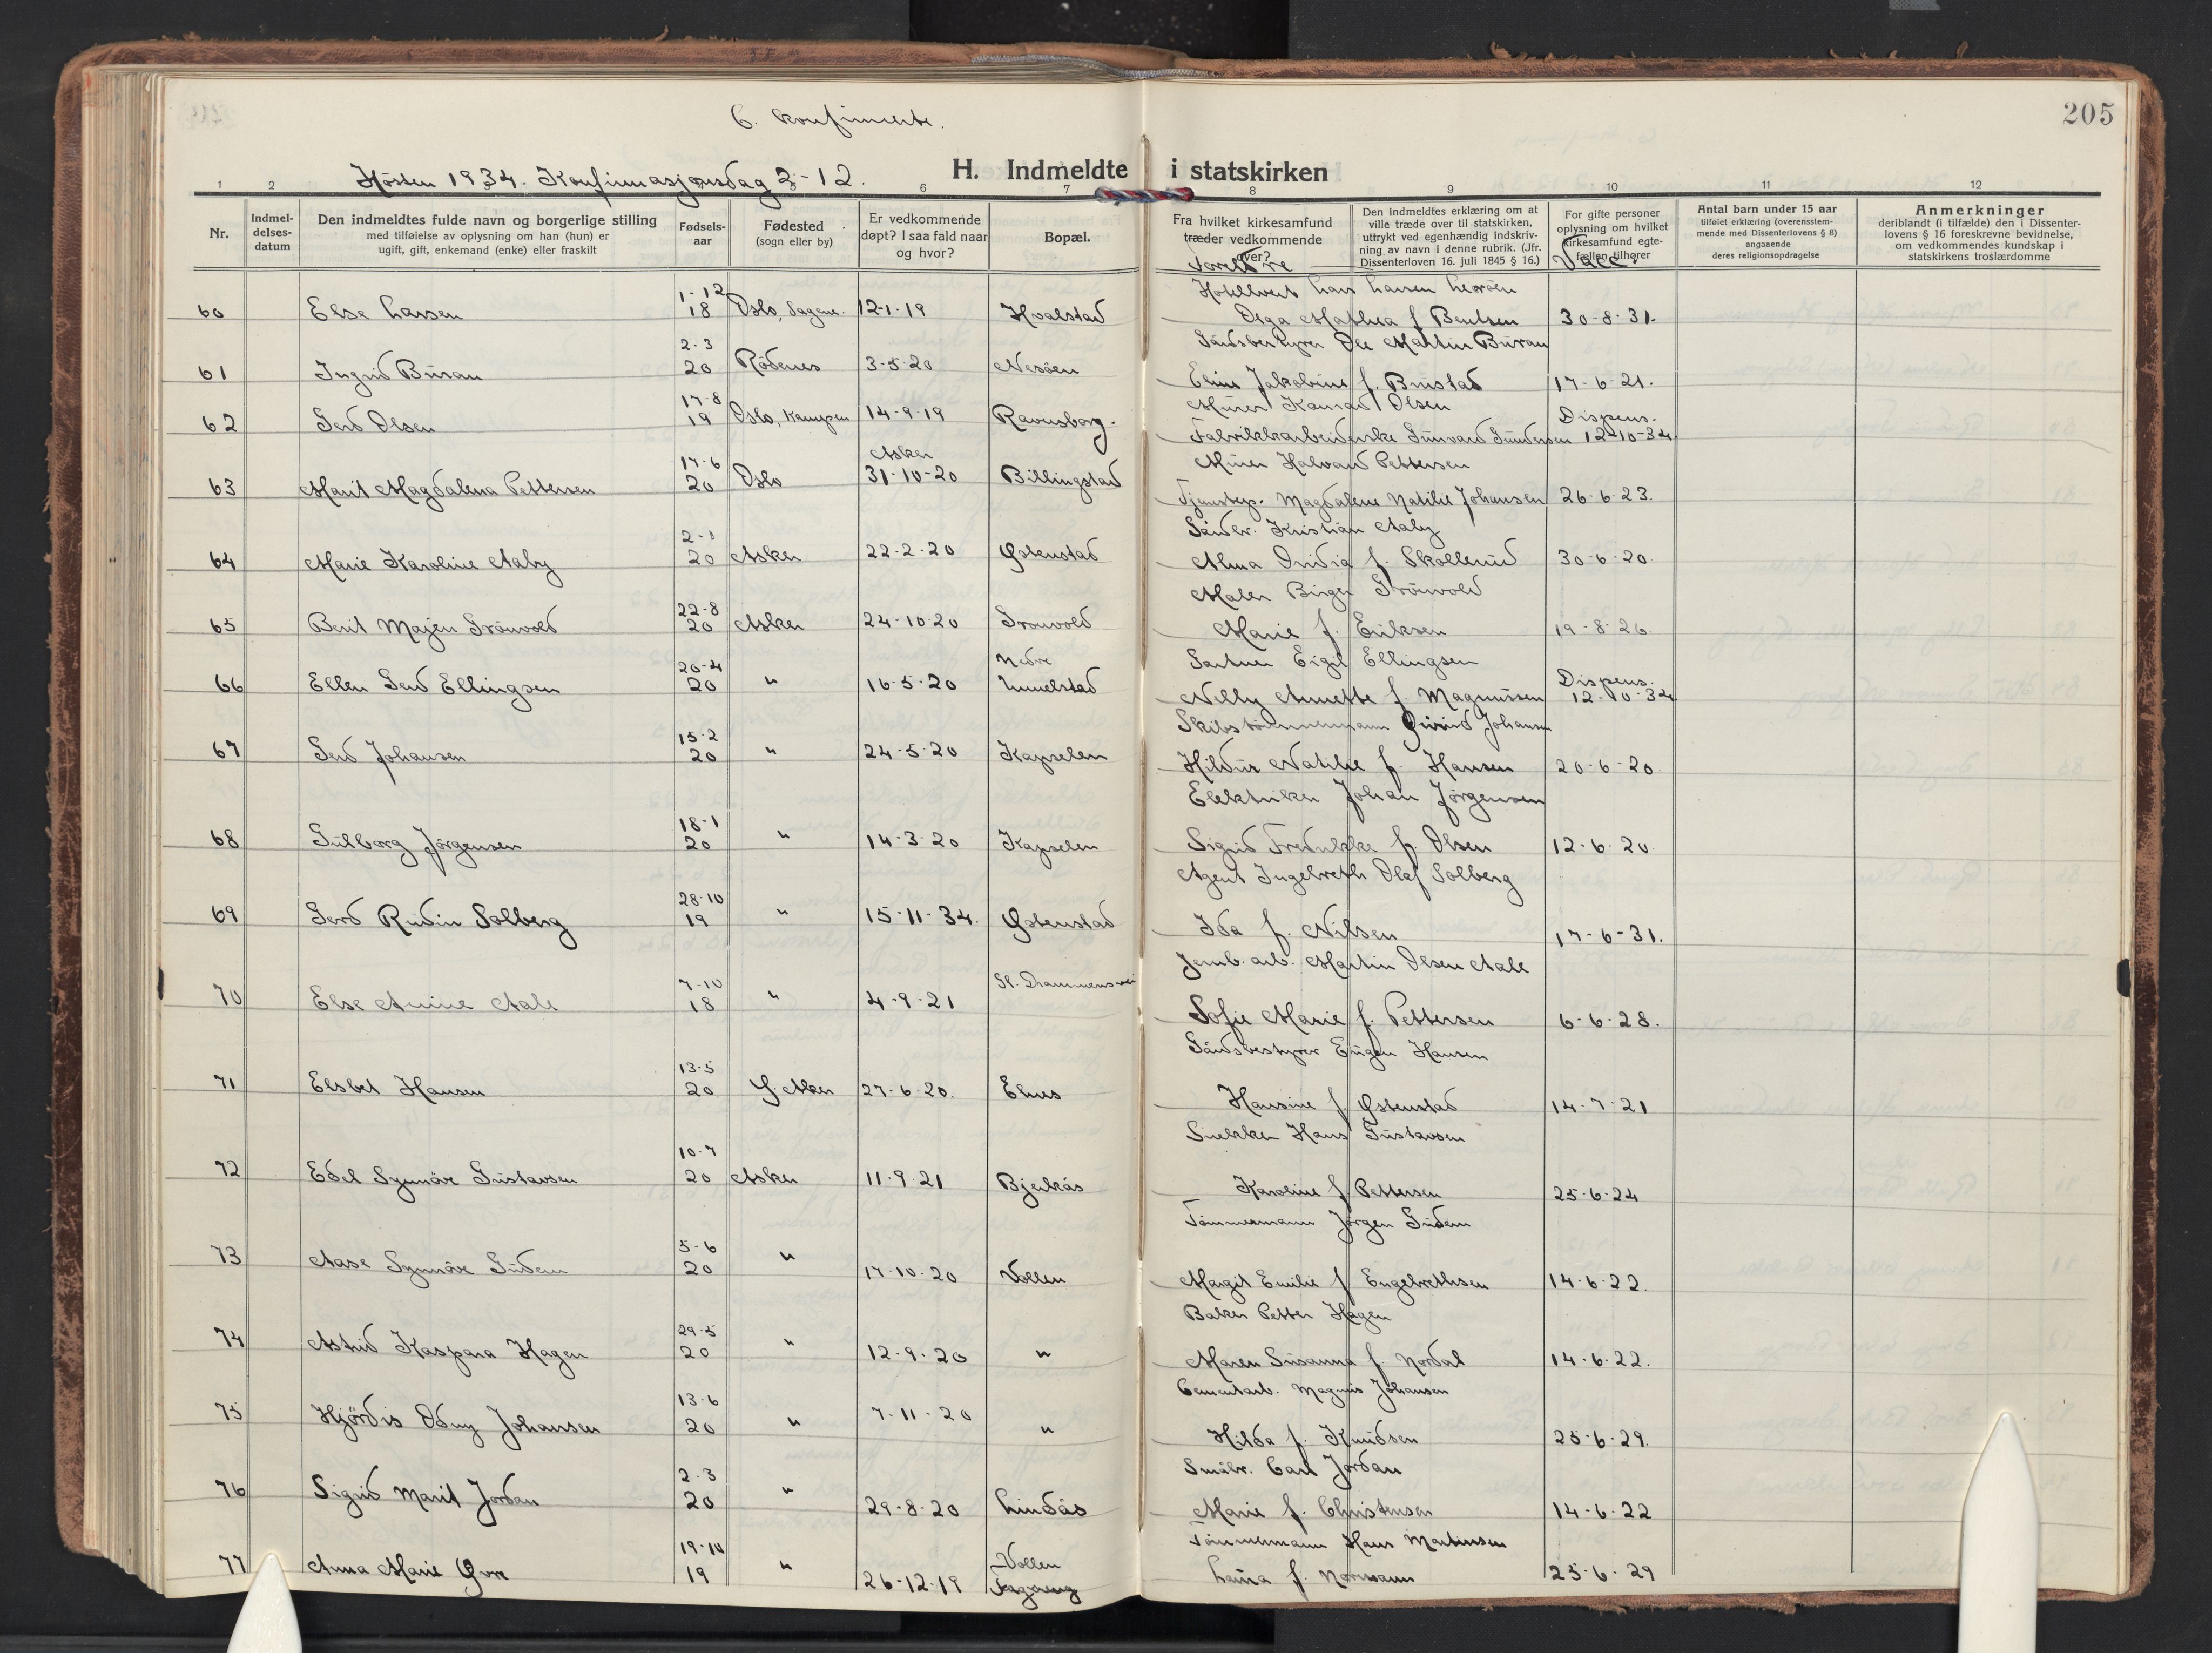 205
C. Konfirmerte.
Hösten 1934. Konfirmasjonsdag 2-12.
H. Indmeldte i statskirken
1 2 6 7 8 9 10 11 12
Nr.
Indmel-
delses-
datum
Den indmeldtes fulde navn og borgerlige stilling
med tilføielse av oplysning om han (hun) er
ugift, gift, enkemand (enke) eller fraskilt
Fødsels-
aar
Fødested
(sogn eller by)
Er vedkommende
døpt? I saa fald naar
og hvor?
Bopæl.
Fra hvilket kirkesamfund
træder vedkommende
over?
Foreldre
Den indmeldtes erklæring om at
ville træde over til statskirken,
uttrykt ved egenhændig indskriv-
ning av navn i denne rubrik. (Jfr.
Dissenterloven 16. juli 1845 § 16.)
For gifte personer
oplysning om hvilket
kirkesamfund egte-
fællen tilhører
Vacc.
Antal barn under 15 aar
tilføiet erklæring (overensstem-
mende med Dissenterlovens § 8)
angaaende
deres religionsopdragelse
Anmerkninger
deriblandt (i tilfælde) den i Dissenter-
lovens § 16 foreskrevne bevidnelse,
om vedkommendes kundskap i
statskirkens troslærdomme
1-12 Hans Hansen
60 Else Larsen 18 Oslo, Sagene. 12-1-19 Hvalstad Olga Mathea f. Bentsen 30-8-31.
2-3 Gårdsbestyrer Ole Martin Buran
61 Ingrid Buran 20 Rödenes 3-5-20 Nesöen Jakobine f. 17-6-21.
17-8 Murer Konrad Olsen Dispens.
62 Gerd Olsen 19 Oslo, Kampen 14-9-19 Ravnsborg. Fabrikkarbeiderske Gunvard Gundersen 12-10-34
17-6 Asker Murer Halvard Pettersen
63 Marit Magdalena Pettersen 20 Oslo 31-10-20 Billingstad Tjenstep. Magdalene Natilie Johansen 26-6-23.
2-1 Gårdbr. Kristian Aaby
64 Marie Karoline Aaby 20 Asker 22-2-20 Østenstad Alma f. Skollerud 30-6-20
22-8 Maler Birger Grönvold
65 Berit Majen Grönvold 20 Asker 24-10-20 Grönvold Marie f. Eriksen 19-8-26.
20-4 Nedre Gartner Eigil Ellingsen Dispens.
66 Ellen Gerd Ellingsen 20 " 16-5-20 Nelly Annette f. Magnussen 12-10-34
15-2 Skibstömmermann Öivind Johansen
67 Gerd Johansen 20 " 24-5-20 Kapselen Hildur Natilie f. Hansen 20-6-20.
18-1 Elektriker Johan Jörgensen
68 Gulborg Jörgensen 20 " 14-3-20 Kapselen Sigrid Fredrikke f. Olsen 12-6-20.
28-10 Agent Ingelreth Olaf Solberg
69 Gerd Rudin Solberg 19 " 15-11-34. Østenstad Ida f. Nilsen 17-6-31.
7-10 Gl. Drammensvei Jernb. arb. Martin Olsen Aall
70 Else Annine Aall 18 " 4-9-21 Sofie Marie f. Pettersen 6-6-28.
13-5 Gårdsbestyrer Eugen Hansen
71 Elsbet Hansen 20 Ø. Aker 27-6-20. Elnes Hansine f. Østenstad 14-7-21
10-7 Snekker Hans Gustavsen
72 Edel Synnöve Gustavsen 20 Asker 11-9-21 Bjerkås Karoline f. Pettersen 25-6-24
5-6 Tömmermann Jörgen Gudem
73 Aase Synnöve Gudem 20 " 17-10-20 Vollen Margit Emilie f. Engelrethsen 14-6-22.
29-5 Baker Petter Hagen
74 Astrid Kaspara Hagen 20 " 12-9-20 " Maren Susanna f. Nordal 14-6-22.
13-6 Cementarb. Magnus Johansen
75 Hjördis Odny Johansen 20 " 7-11-20 " Hilda f. Knudsen 25-6-29.
2-3 Småbr. Carl Jordan
76 Sigrid Marit Jordan 20 " 29-8-20 Lindås Marie f. Christensen 14-6-22
19-10 Vollen Tömmermann Hans Martinsen
77 Anna Marie Øvre 19 " 26-12-19 Laura f. Normann 25-6-29